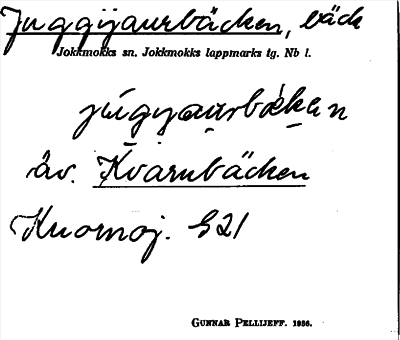 Juggijaurbäcken, bäck
Jokkmokks sn. Jokkmokks lappmarks tg. Nb l.
äv. Kvarnbäcken
Knornoj. S21
GUNNAR PELLIJEFF. 1956.